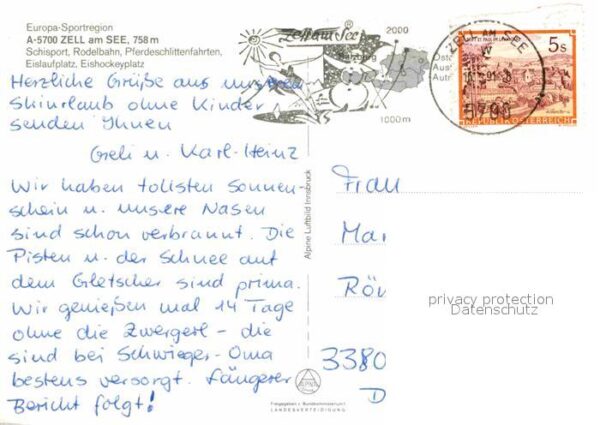 Europa-Sportregion
A-5700 ZELL am SEE, 758 m
Schisport, Rodelbahn, Pferdeschlittenfahrten,
Eislaufplatz, Eishockeyplatz
Zell am See
2000
1000 m
ZELL AM SEE
5700
5 s
REPUBLIK ÖSTERREICH
Herzliche Grüße aus unserem
Skiurlaub ohne Kinder
senden Ihnen
Geli u. Karl-Heinz
Wir haben tollsten Sonnen-
schein u. unsere Nasen
sind schon verbrannt. Die
Pisten u. der Schnee auf
dem Gletscher sind prima.
Wir genießen mal 14 Tage
ohne die Zwergerl - die
sind bei Schwieger-Oma
bestens versorgt. Längerer
Bericht folgt!
Alpine Luftbild Innsbruck
Frau
Mar
Rör
3380
D
privacy protection
Datenschutz
Freigegeben v. Bundesministerium f.
LANDESVERTEIDIGUNG